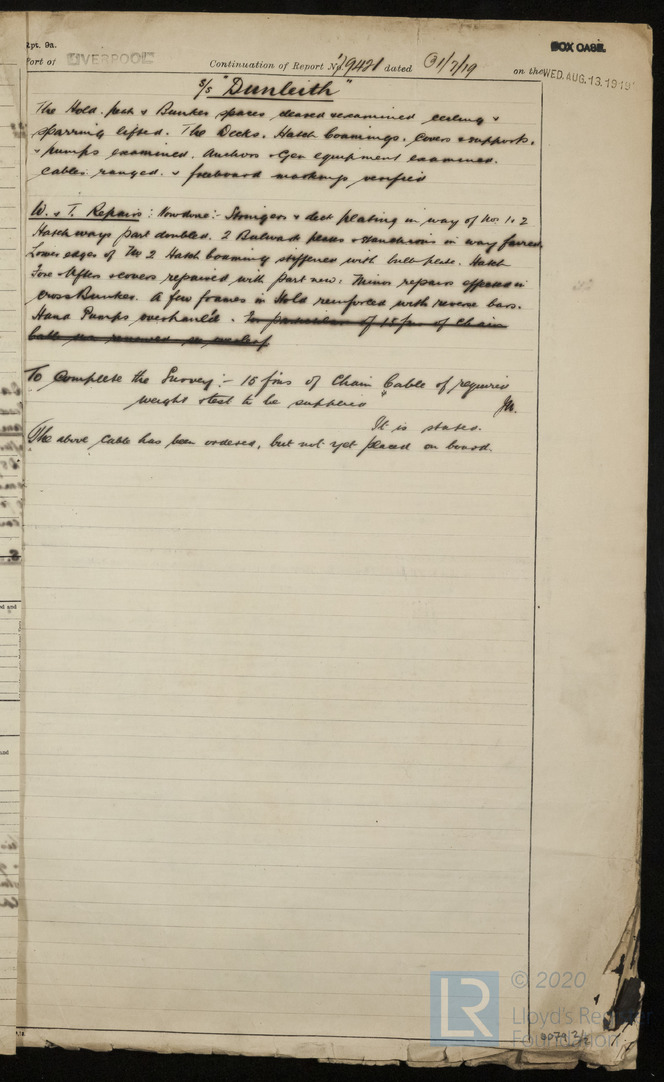 Rpt. 9a.
BOX CASE.
Port of LIVERPOOL
Continuation of Report No. 79421 dated 31/7/19 on the WED. AUG. 13. 1919
S/S "Dunleith"
The Hold. peak & Bunker spaces cleared & examined ceiling &
sparring lifted. The Decks, Hatch Coamings, covers & supports.
& pumps examined. Anchors & Gen equipment examined.
Cables ranged. & freeboard markings verified
W. & T. Repairs: Now done:- Stringers & deck plating in way of No. 1 & 2
Hatchways part doubled. 2 Bulwark plates & stanchions in way faired
Lower edges of No 2 Hatch Coaming stiffened with bulb plate. Hatch
Fore & Afters & covers repaired with part new: Minor repairs effected in
cross Bunker. A few frames in Hold reinforced with reverse bars.
Hand Pumps overhauled. of 15 fms of Chain
Cable renewed
To complete the Survey:- 15 fms of Chain Cable of required
weight & test to be supplied
It is stated.
The above cable has been ordered, but not yet placed on board.
LR
© 2020
Lloyd's Register
Foundation
0079 2/2